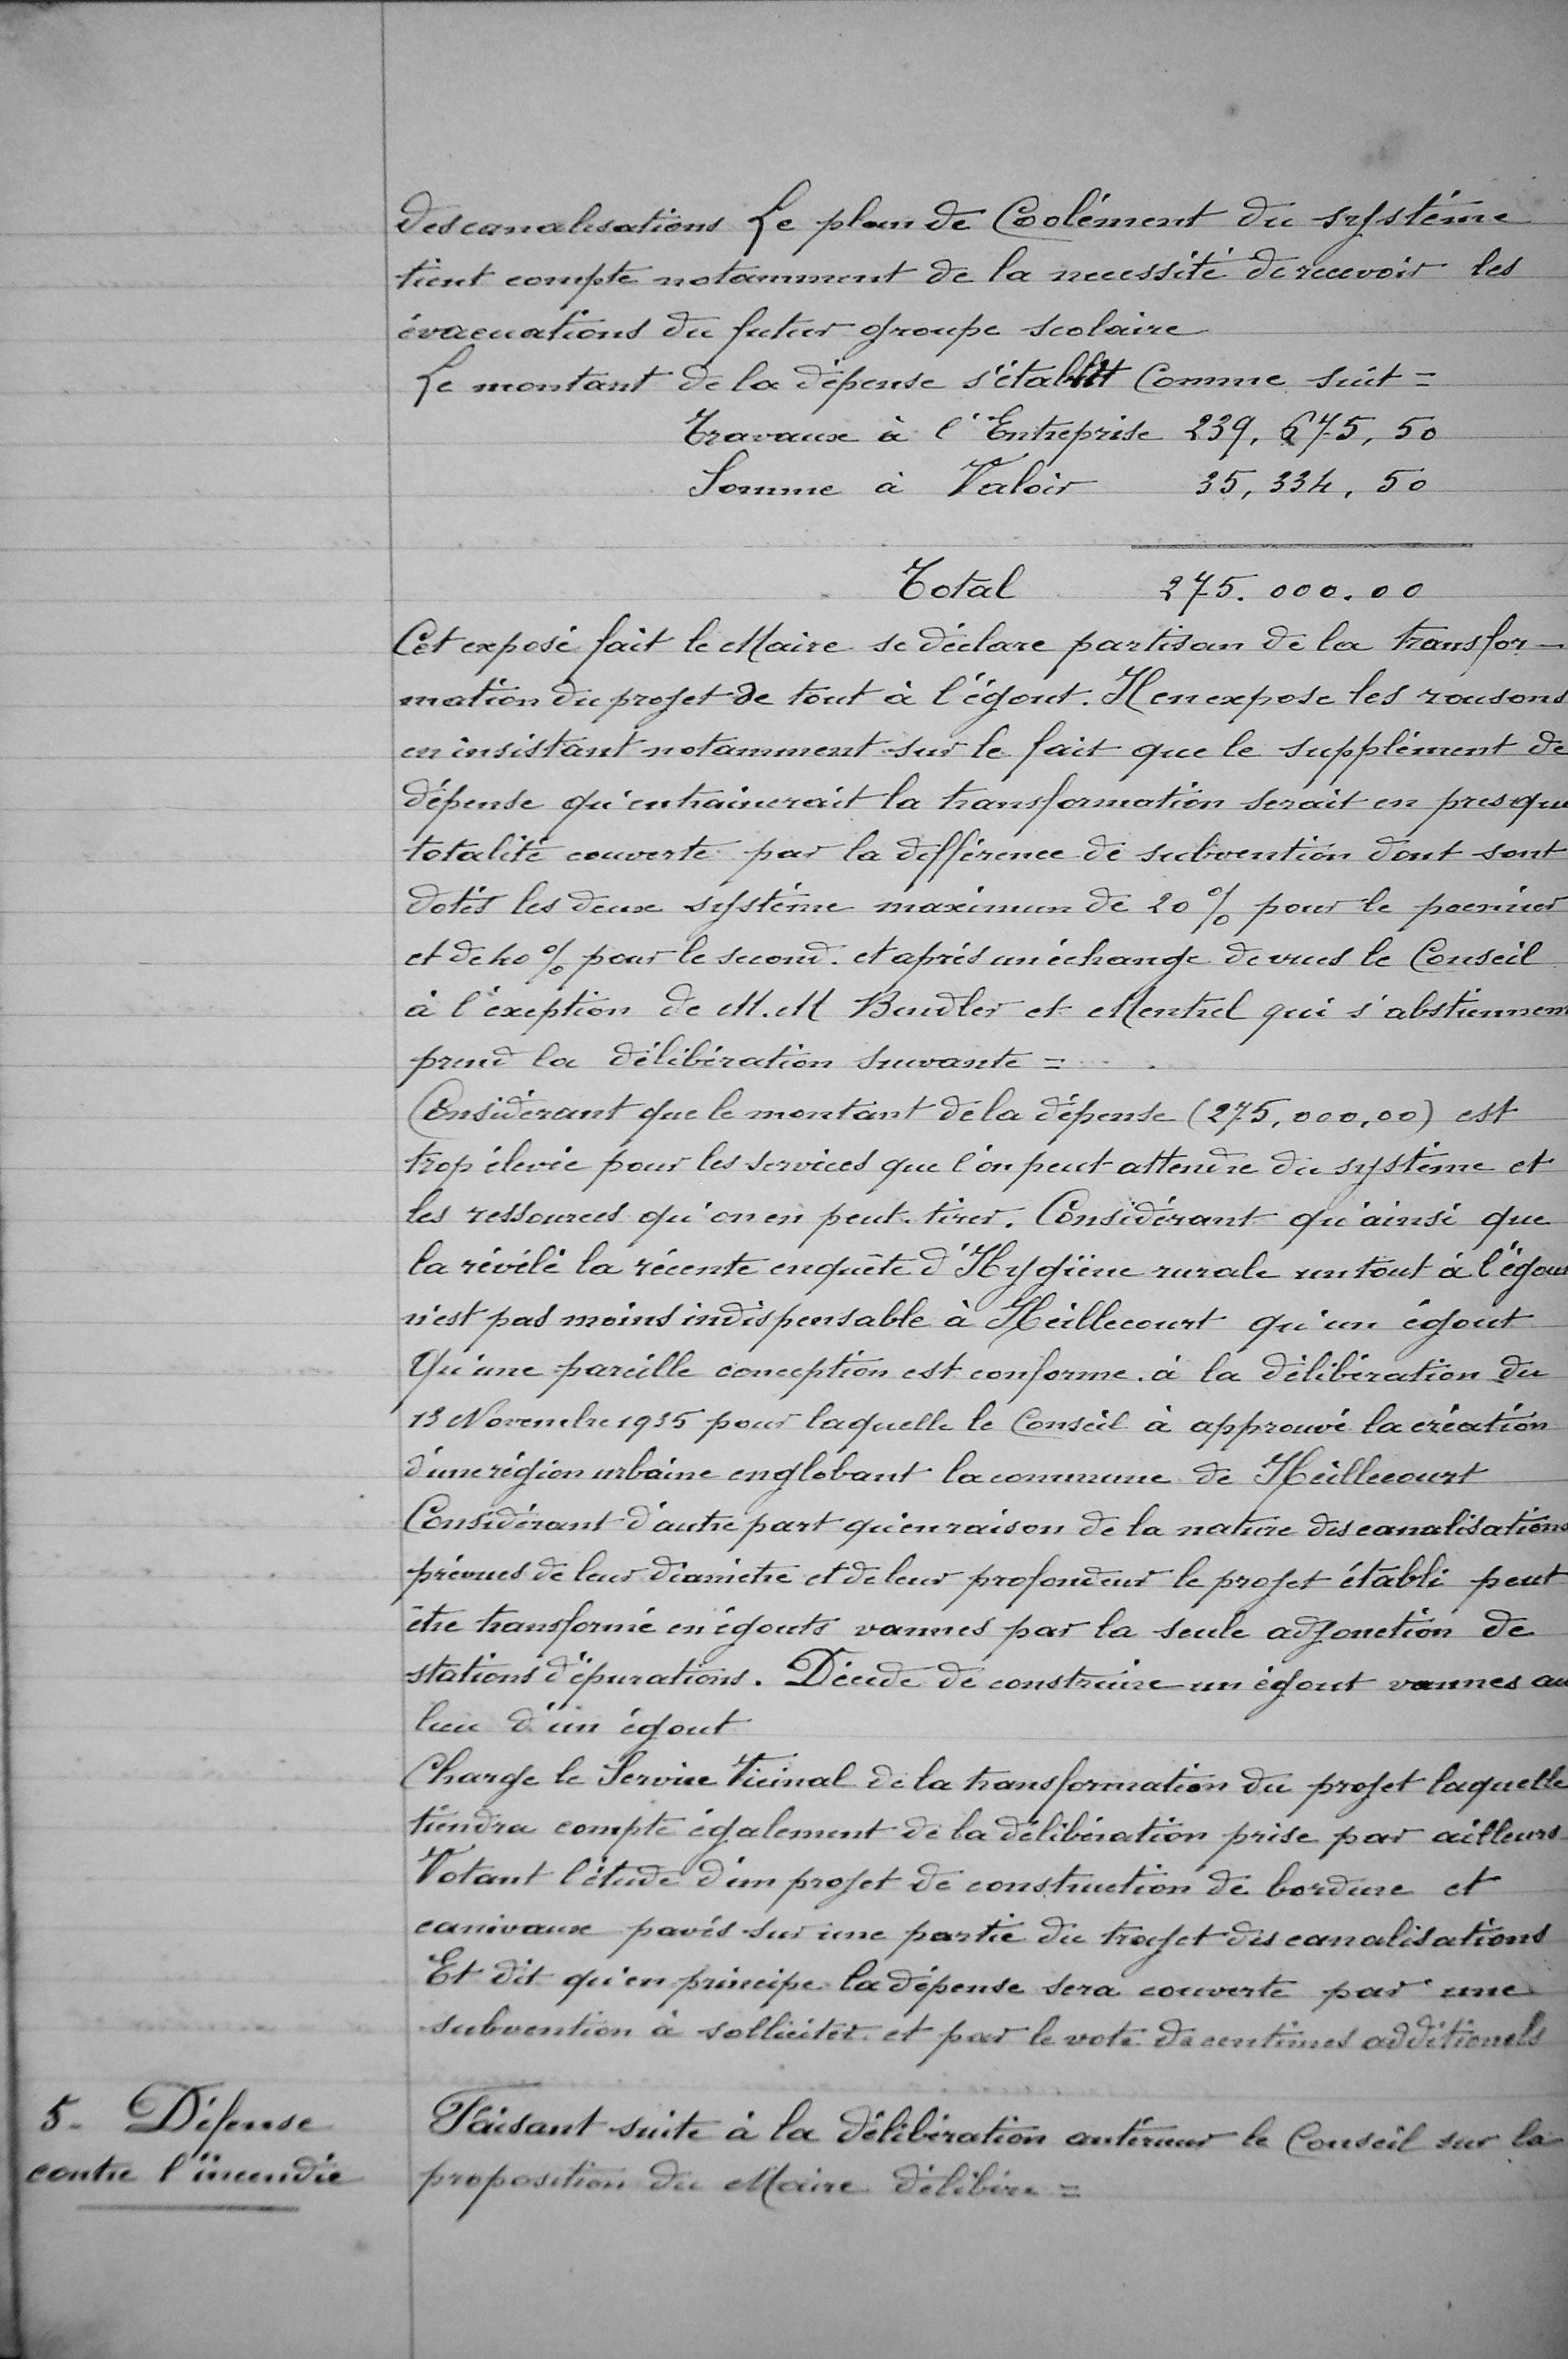 des canalisations Le plan de Coolément du système
tient compte notamment de la necessité de recevoir les
évacuations du futur groupe scolaire
Le montant de la dépense s'établit Comme suit =
Travaux à l'Entreprise 239, 675, 50
Somme à Valoir 35, 334, 50
Total 275. 000. 00
Cet exposé fait le Maire se déclare partisan de la transfor-
mation du projet de tout à l'égout. Il en expose les raisons
en insistant notamment sur le fait que le supplément de
dépense qu'entrainerait la transformation serait en presque
totalité couverte par la différence de subvention dont sont
dotés les deux système maximum de 20 % pour le premier
et de 40 % pour le second. et après un échange de vues le Conseil
à l'exeption de M. M Bendler et Mentrel qui s'abstiennent
prend la délibération suivante =
Considérant que le montant de la dépense (275,000,00) est
trop élevée pour les services que l'on peut attendre du système et
les ressources qu'on en peut tirer. Considérant qu'ainsi que
la révélé la récente enquête d'Hygiène rurale un tout à l'égout
n'est pas moins indispensable à Heillecourt qu'un égout
Qu'une pareille conception est conforme à la délibération du
13 Novembre 1935 pour laquelle le Conseil à approuvé la création
d'une région urbaine englobant la commune de Heillecourt
Considérant d'autre part qu'en raison de la nature des canalisations
prévues de leur diamètre et de leur profondeur le projet établi peut
être transformé en égouts vannes par la seule adjonction de
stations d'épurations. Décide de construire un égout vannes au
lieu d'un égout
Charge le Service Vicinal de la transformation du projet laquelle
tiendra compte également de la délibération prise par ailleurs
Votant l'étude d'un projet de construction de bordure et
canivaux pavés sur une partie du trajet des canalisations
Et dit qu'en principe la dépense sera couverte par une
subvention à solliciter et par le vote de centimes additionels
5- Défense
contre l'incendie
Faisant suite à la délibération antérieur le Conseil sur la
proposition du Maire délibère =